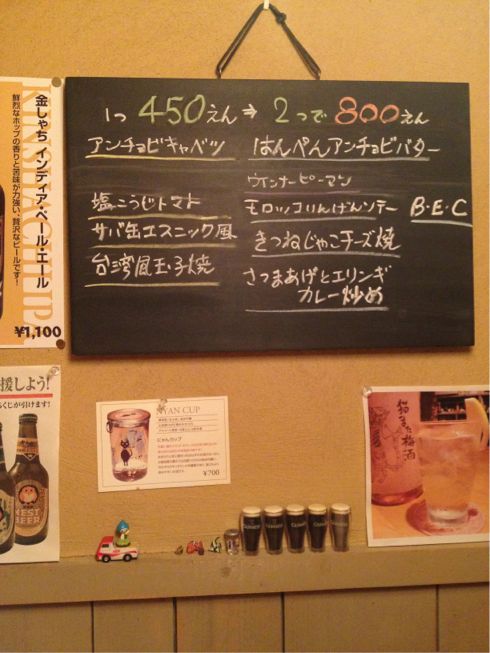 1つ 450えん ⇒ 2つで 800えん
アンチョビキャベツ
塩こうじトマト
サバ缶エスニック風
台湾風玉子焼
はんぺんアンチョビバター
ウインナーピーマン
モロッコいんげんソテー
B・E・C
きつねじゃこチーズ焼
さつまあげとエリンギ
カレー炒め
金しゃち インディア・ペール・エール
鮮烈なホップの香りと苦味が力強い、贅沢なビールです!
¥1,100
援しよう!
くじが引けます!
NEST
BEER
NYAN CUP
にゃんカップ
¥700
猫また梅酒